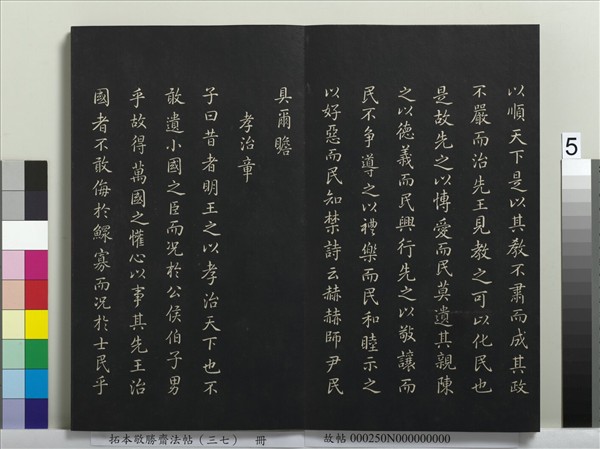 以順天下是以其教不肅而成其政
不嚴而治先王見教之可以化民也
是故先之以博愛而民莫遺其親陳
之以德義而民興行先之以敬讓而
民不爭導之以禮樂而民和睦示之
以好惡而民知禁詩云赫赫師尹民
具爾瞻
孝治章
子曰昔者明王之以孝治天下也不
敢遺小國之臣而況於公侯伯子男
乎故得萬國之懽心以事其先王治
國者不敢侮於鰥寡而況於士民乎
5
拓本敬勝齋法帖(三七) 冊
故帖 000250N000000000